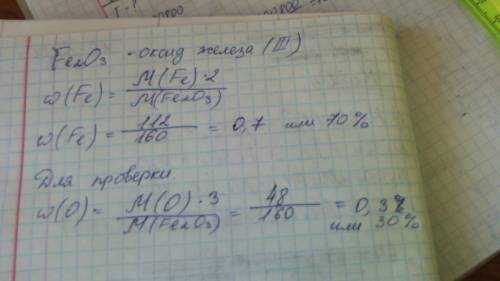 Fe₂O₃ - оксид железа (III)
w(Fe) = M(Fe)·2 / M(Fe₂O₃)
w(Fe) = 112 / 160 = 0,7 или 70%
Для проверки
w(O) = M(O)·3 / M(Fe₂O₃) = 48 / 160 = 0,3%
или 30%